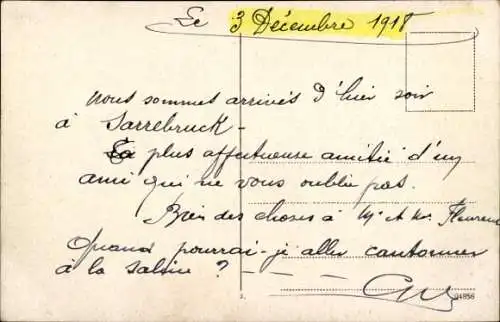 Le 3 Décembre 1918
nous sommes arrivés d'hier soir
à Sarrebruck -
La plus affectueuse amitié d'un
ami qui ne vous oublie pas.
Bien des choses à Mr & Me
Quand pourrai-je aller cantonner
à la saline ? - - - -
2. 04856